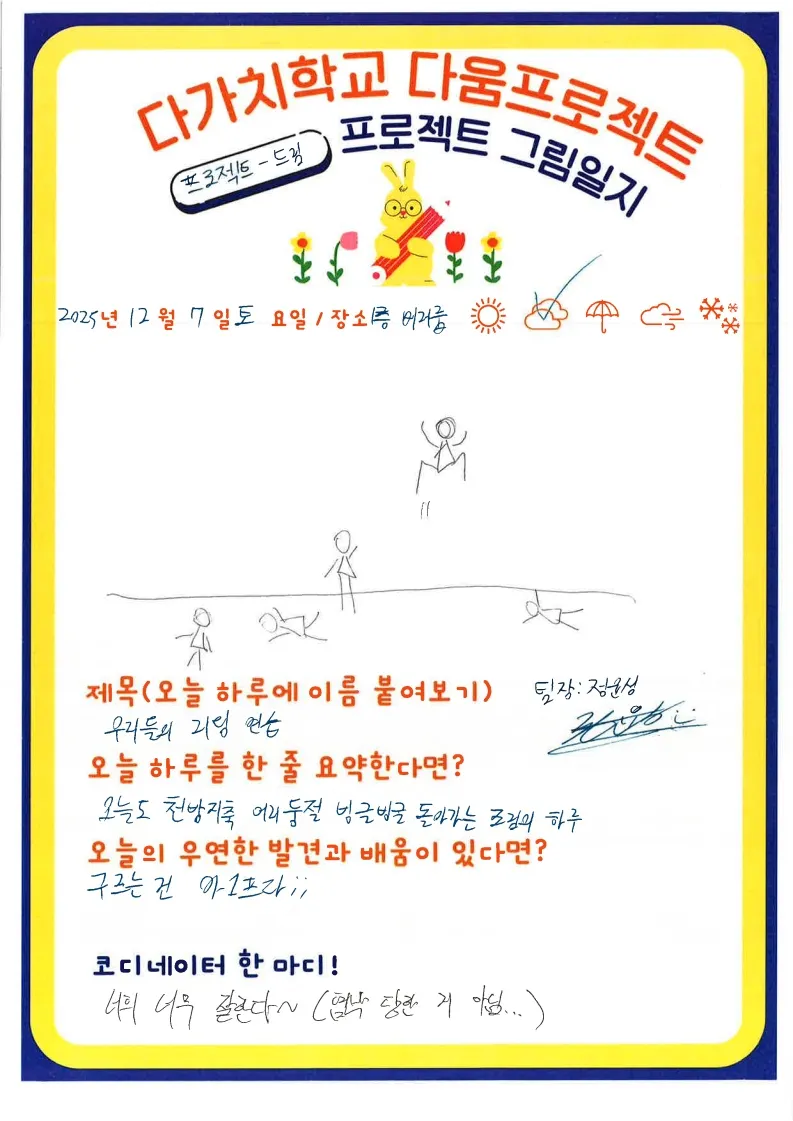 다가치학교 다움프로젝트
프로젝트 그림일지
프로젝트 - 드림
2025년 12월 7일 토 요일 / 장소 1층 버리룸
제목(오늘 하루에 이름 붙여보기)
팀장: 정윤성
우리들의 리딩 연습
오늘 하루를 한 줄 요약한다면?
오늘도 천방지축 어리둥절 빙글빙글 돌아가는 드림의 하루
오늘의 우연한 발견과 배움이 있다면?
구르는 건 아프다;;
코디네이터 한 마디!
너희 너무 잘한다~ (협박 당한 거 아님...)